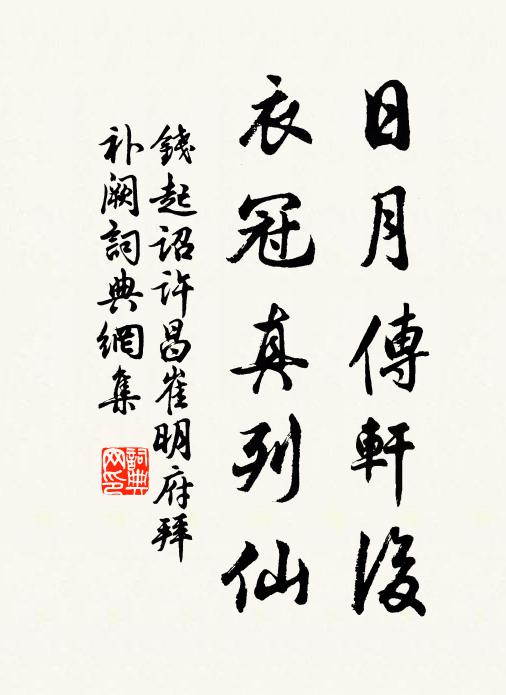 日月傳軒後
衣冠真列仙
錢起詔許昌崔明府拜
补阙詞典網集
詞典网印